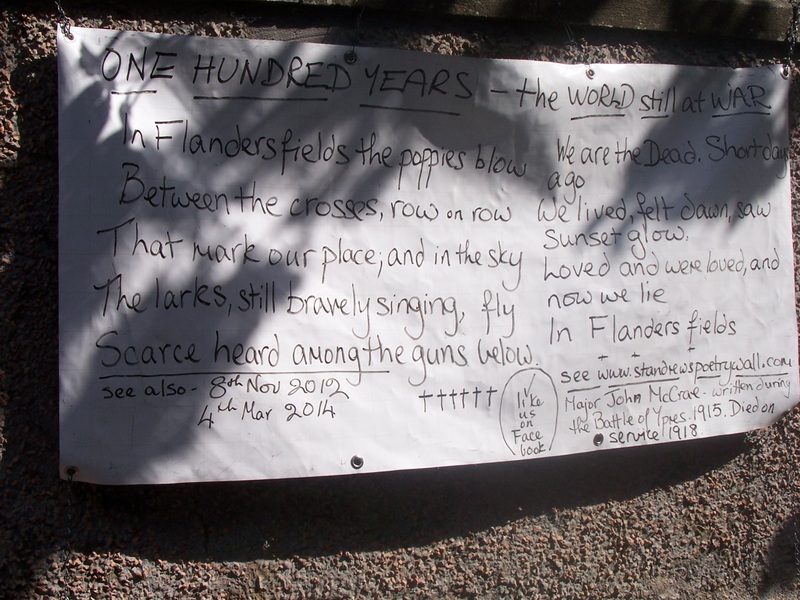 ONE HUNDRED YEARS - the WORLD still at WAR
In Flanders fields the poppies blow
Between the crosses, row on row
That mark our place; and in the sky
The larks, still bravely singing, fly
Scarce heard among the guns below.
see also - 8th Nov 2012
4th Mar 2014
††††††
We are the Dead. Short day
ago
We lived, felt dawn, saw
Sunset glow.
Loved and were loved, and
now we lie
In Flanders fields
see www.standrewspoetrywall.com
Major John McCrae - written during
the Battle of Ypres. 1915. Died on
service 1918.
✓
like
us
on
Face
book